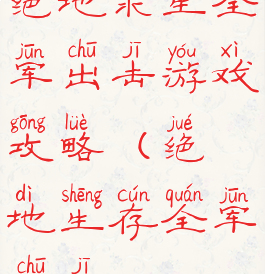 绝地求生全
jūn chū jī yóu xì
军出击游戏
gōng lüè jué
攻略（绝
dì shēng cún quán jūn
地生存全军
chū jī